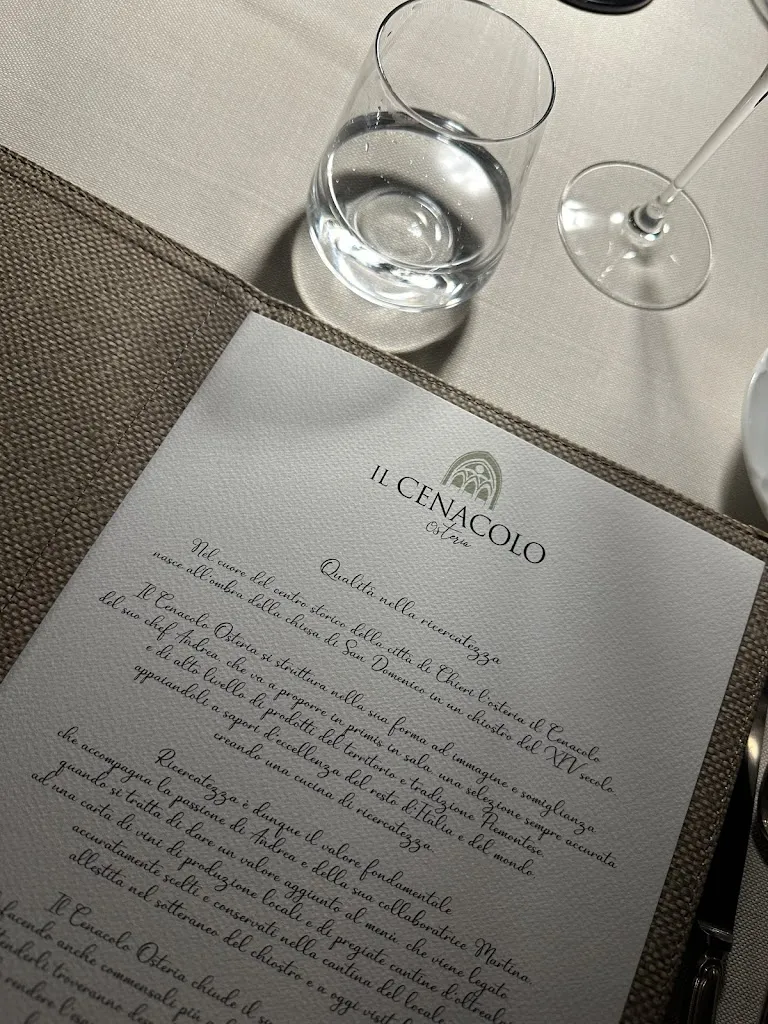 IL CENACOLO
Osteria
Qualità nella ricercatezza
Nel cuore del centro storico della città di Chieri l'osteria il Cenacolo
nasce all'ombra della chiesa di San Domenico in un chiostro del XIV secolo.
Il Cenacolo Osteria si struttura nella sua forma ad immagine e somiglianza
del suo chef Andrea, che va a proporre in primis in sala, una selezione sempre accurata
e di alto livello di prodotti del territorio e tradizione Piemontese
appaiandoli a sapori d'eccellenza del resto di Italia e del mondo
creando una cucina di ricercatezza.
Ricercatezza è dunque il valore fondamentale
che accompagna la passione di Andrea e della sua collaboratrice Martina
quando si tratta di dare un valore aggiunto al menù, che viene legato
ad una carta di vini di produzione locale e di pregiate cantine d'oltre
accuratamente scelti e conservati nella cantina del locale
allestita nel sotteraneo del chiostro e a oggi
Il Cenacolo Osteria chiude il
facendo anche commensali più
troveranno
rendere